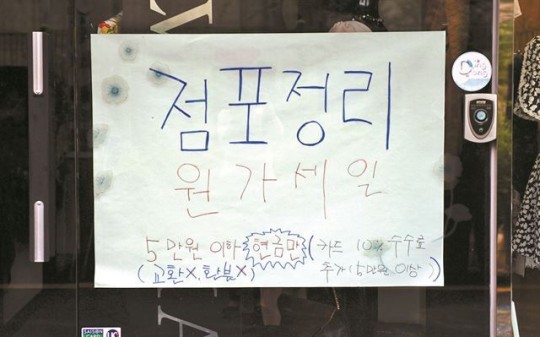 점포정리
원가세일
5만원 이하 현금만 (카드 10% 수수료
(교환X, 환불X) 추가 (5만원 이상))